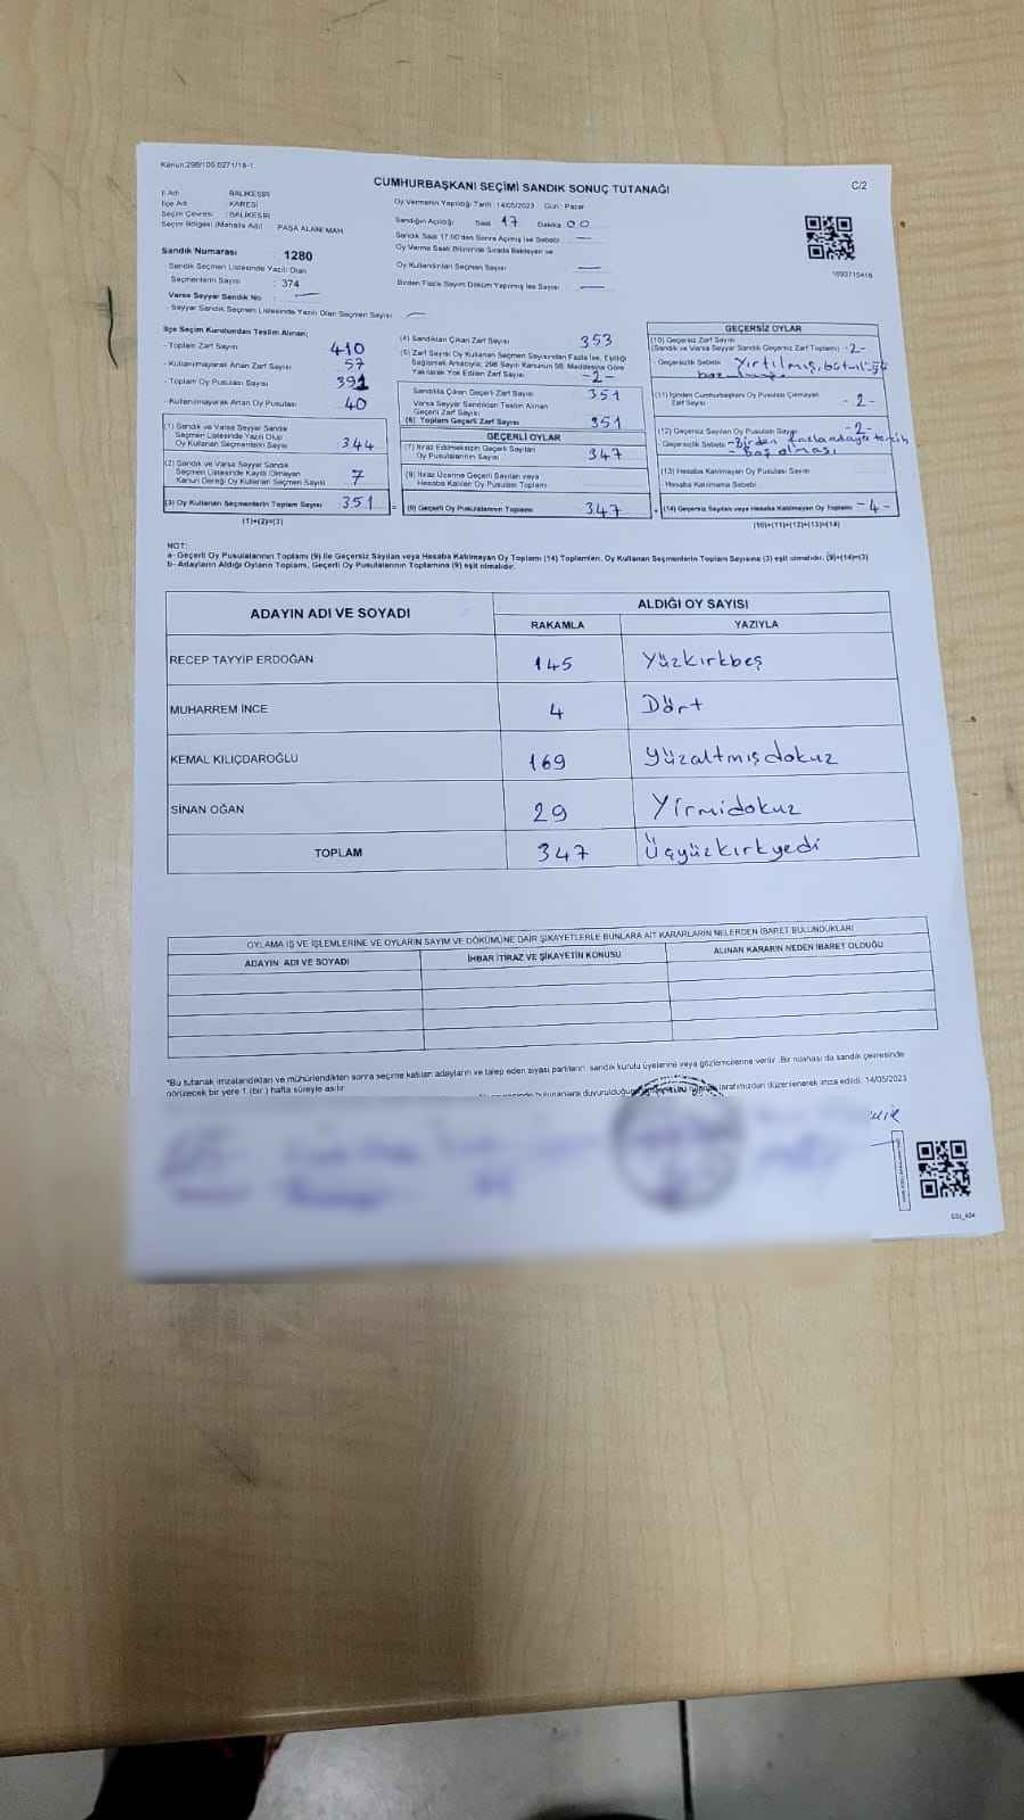 Kanun:298/105.0271/18-1
CUMHURBAŞKANI SEÇİMİ SANDIK SONUÇ TUTANAĞI
C/2
İl Adı BALIKESİR
İlçe Adı KARESİ
Seçim Çevresi BALIKESİR
Seçim Bölgesi (Mahalle Adı) PAŞA ALANI MAH.
Sandık Numarası 1280
Sandık Seçmen Listesinde Yazılı Olan
Seçmenlerin Sayısı : 374
Varsa Seyyar Sandık No —
- Seyyar Sandık Seçmen Listesinde Yazılı Olan Seçmen Sayısı —
Oy Vermenin Yapıldığı Tarih : 14/05/2023 Gün : Pazar
Sandığın Açıldığı Saat 17 Dakika 00
Sandık Saat 17.00'den Sonra Açılmış İse Sebebi —
Oy Verme Saati Bitiminde Sırada Bekleyen ve
Oy Kullandırılan Seçmen Sayısı —
Birden Fazla Sayım Döküm Yapılmış İse Sayısı —
İlçe Seçim Kurulundan Teslim Alınan;
- Toplam Zarf Sayısı 410
- Kullanılmayarak Artan Zarf Sayısı 57
- Toplam Oy Pusulası Sayısı 391
- Kullanılmayarak Artan Oy Pusulası 40
(1) Sandık ve Varsa Seyyar Sandık
Seçmen Listesinde Yazılı Olup
Oy Kullanan Seçmenlerin Sayısı 344
(2) Sandık ve Varsa Seyyar Sandık
Seçmen Listesinde Kayıtlı Olmayan
Kanun Gereği Oy Kullanan Seçmen Sayısı 7
(3) Oy Kullanan Seçmenlerin Toplam Sayısı 351
(1)+(2)=(3)
(4) Sandıktan Çıkan Zarf Sayısı 353
(5) Zarf Sayısı Oy Kullanan Seçmen Sayısından Fazla İse, Eşitliği
Sağlamak Amacıyla, 298 Sayılı Kanunun 98. Maddesine Göre
Yakılarak Yok Edilen Zarf Sayısı -2-
Sandıkta Çıkan Geçerli Zarf Sayısı 351
Varsa Seyyar Sandıktan Teslim Alınan
Geçerli Zarf Sayısı
(6) Toplam Geçerli Zarf Sayısı 351
GEÇERLİ OYLAR
(7) İtiraz Edilmeksizin Geçerli Sayılan
Oy Pusulalarının Sayısı 347
(8) İtiraz Üzerine Geçerli Sayılan veya
Hesaba Katılan Oy Pusulası Toplamı
(9) Geçerli Oy Pusulalarının Toplamı 347
GEÇERSİZ OYLAR
(10) Geçersiz Zarf Sayısı
(Sandık ve Varsa Seyyar Sandık Geçersiz Zarf Toplamı) -2-
Geçersizlik Sebebi Yırtılmış,
(11) İçinden Cumhurbaşkanı Oy Pusulası Çıkmayan
Zarf Sayısı -2-
(12) Geçersiz Sayılan Oy Pusulası Sayısı -2-
- Geçersizlik Sebebi -Birden fazla adaya tercih
- Boş olması
(13) Hesaba Katılmayan Oy Pusulası Sayısı
Hesaba Katılmama Sebebi
(14) Geçersiz Sayılan veya Hesaba Katılmayan Oy Toplamı -4-
(10)+(11)+(12)+(13)=(14)
NOT:
a- Geçerli Oy Pusulalarının Toplamı (9) ile Geçersiz Sayılan veya Hesaba Katılmayan Oy Toplamı (14) Toplamları, Oy Kullanan Seçmenlerin Toplam Sayısına (3) eşit olmalıdır. (9)+(14)=(3)
b- Adayların Aldığı Oyların Toplamı, Geçerli Oy Pusulalarının Toplamına (9) eşit olmalıdır.
ADAYIN ADI VE SOYADI
ALDIĞI OY SAYISI
RAKAMLA YAZIYLA
RECEP TAYYİP ERDOĞAN 145 Yüzkırkbeş
MUHARREM İNCE 4 Dört
KEMAL KILIÇDAROĞLU 169 Yüzaltmışdokuz
SİNAN OĞAN 29 Yirmidokuz
TOPLAM 347 Üçyüzkırkyedi
OYLAMA İŞ VE İŞLEMLERİNE VE OYLARIN SAYIM VE DÖKÜMÜNE DAİR ŞİKAYETLERLE BUNLARA AİT KARARLARIN NELERDEN İBARET BULUNDUKLARI
ADAYIN ADI VE SOYADI İHBAR İTİRAZ VE ŞİKAYETİN KONUSU ALINAN KARARIN NEDEN İBARET OLDUĞU
*Bu tutanak imzalandıktan ve mühürlendikten sonra seçime katılan adayların ve talep eden siyasi partilerin, sandık kurulu üyelerine veya gözlemcilerine verilir. Bir nüshası da sandık çevresinde
görülecek bir yere 1 (bir) hafta süreyle asılır.
bulunanlara duyurulduğu tarafımızdan düzenlenerek imza edildi. 14/05/2023